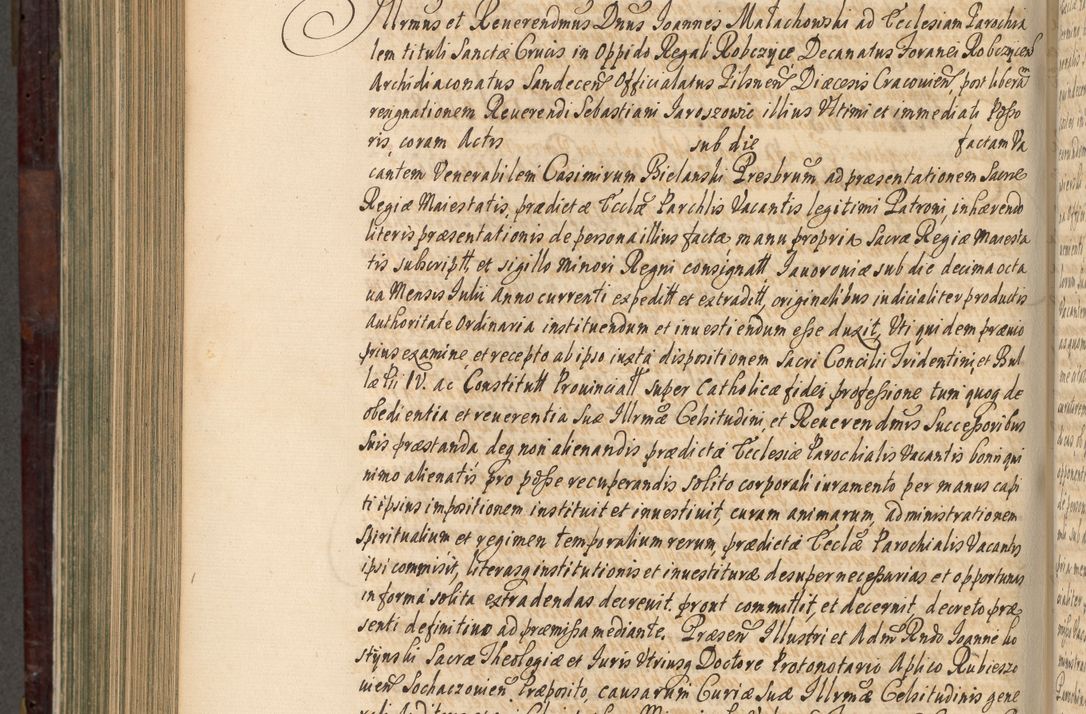 Illrmus et Reuerendmus Dnus Joannes Małachowski ad Ecclesiam Parochia
lem tituli Sanctæ Crucis in Oppido Regali Robczyce Decanatus Foranei Robczycen
Archidiaconatus Sandecen Officialatus Pilsnen Diæcesis Cracouien, post liberam
resignationem Reuerendi Sebastiani Jaroszowic illius Vltimi et immediati Posso
ris, coram Actis sub die factam Va
cantem Venerabilem Casimirum Bielanski Presbrum ad præsentationem Sacræ
Regiæ Maiestatis, prædictæ Ecclæ Parchlis Vacantis legitimi Patroni, inhærendo
literis præsentationis de persona illius factæ manu propria Sacræ Regiæ Maiesta
tis subscriptt, et sigillo minori Regni consignatt Jauoroniæ sub die decima octa
ua Mensis Julii anno currenti expeditt et extraditt, originalibus iudicialiter productis
Authoritate Ordinaria instituendum et inuestiendum esse duxit, Vti quidem præuio
prius examine, et recepto ab ipso iuxta dispositionem Sacri Concilii Tridentini, et Bul
læ Pii IV. ac Constitutt Prouinciatt super Catholicæ fidei professione tum quoq de
obedientia et reuerentia Suæ Illrmæ Celsitudini, et Reuerendmis Successoribus
Suis præstanda deq non alienandis prædictæ Ecclesiæ Parochialis Vacantis bonis qui
nimo alienatis pro posse recuperandis solito corporali iuramento per manus capi
ti ipsius impositionem instituit et inuestiuit, curam animarum, administrationem
Spiritualium et regimen temporalium rerum, prædictæ Ecclæ Parochialis Vacantis
ipsi commisit, literasq institutionis et inuestituræ desuper necessarias et opportunas
in forma solita extradendas decreuit, prout committit, et decernit, decreto præ
senti definitiuo ad præmissa mediante. Præsen Illustri et Adm Rndo Joanne
Sacræ Theologiæ et Juris Vtriusq Doctore Protonotario Aplico Rubieszo
uien Sochaczouien Præposito, causarum Curiæ Suæ Illrmæ Celsitudinis gene